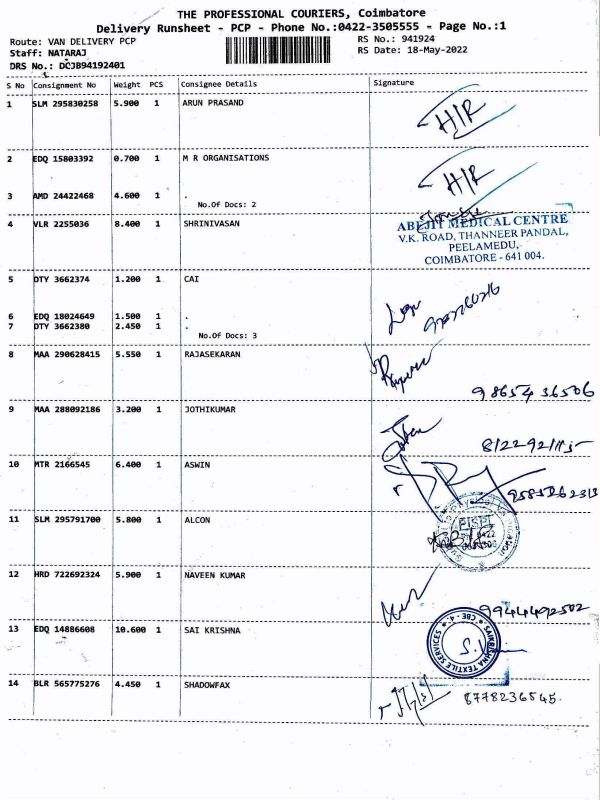 THE PROFESSIONAL COURIERS, Coimbatore
Delivery Runsheet - PCP - Phone No.:0422-3505555 - Page No.:1
Route: VAN DELIVERY PCP
RS No.: 941924
Staff: NATARAJ
RS Date: 18-May-2022
DRS No.: DCJB94192401
S No Consignment No Weight PCS Consignee Details Signature
1 SLM 295830258 5.900 1 ARUN PRASAND
H/R
2 EDQ 15803392 0.700 1 M R ORGANISATIONS
H/R
3 AMD 24422468 4.600 1 .
No.Of Docs: 2
4 VLR 2255036 8.400 1 SHRINIVASAN
MEDICAL CENTRE
V.K. ROAD, THANNEER PANDAL,
PEELAMEDU,
COIMBATORE - 641 004.
5 DTY 3662374 1.200 1 CAI
6 EDQ 18024649 1.500 1 .
7 DTY 3662380 2.450 1 .
No.Of Docs: 3
8 MAA 290628415 5.550 1 RAJASEKARAN
98654 36506
9 MAA 288092186 3.200 1 JOTHIKUMAR
10 MTR 2166545 6.400 1 ASWIN
9585262313
11 SLM 295791700 5.800 1 ALCON
12 HRD 722692324 5.900 1 NAVEEN KUMAR
9944492502
13 EDQ 14886608 10.600 1 SAI KRISHNA
SAIKRISHNA TEXTILE SERVICES
CBE - 4.
14 BLR 565775276 4.450 1 SHADOWFAX
8778236545.